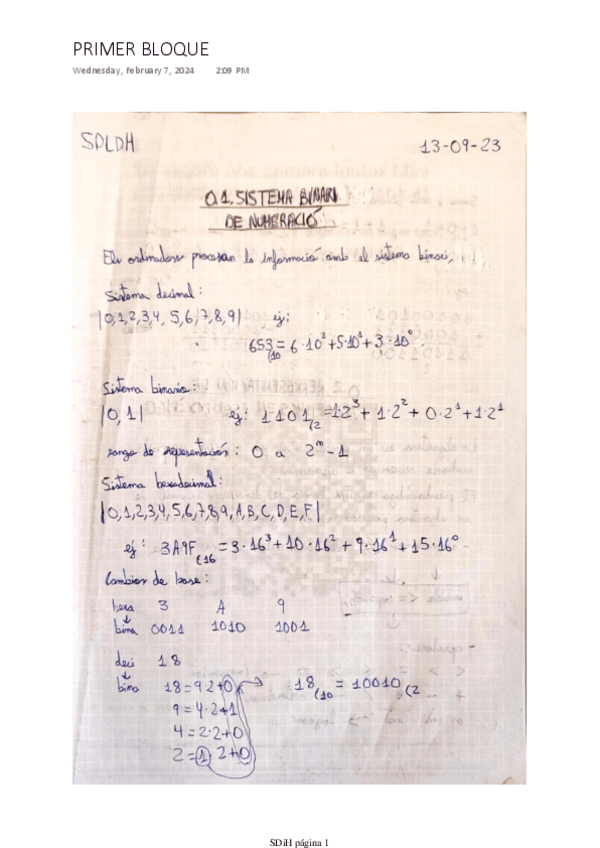 PRIMER BLOQUE
Wednesday, February 7, 2024 2:09 PM
SDLDH 13-09-23
0.1. SISTEMA BINARI
DE NUMERACIÓ
Els ordinadors procesan la informació amb el sistema binari.
Sistema decimal:
|0,1,2,3,4, 5,6,7,8,9| ej:
653/10 = 6·10² + 5·10¹ + 3·10⁰.
Sistema binario:
|0,1| ej: 1101/2 = 1·2³ + 1·2² + 0·2¹ + 1·2¹
rango de representación: 0 a 2ⁿ-1
Sistema hexadecimal:
|0,1,2,3,4,5,6,7,8,9,A,B,C,D,E,F|
ej: 3A9F(16 = 3·16³ + 10·16² + 9·16¹ + 15·16⁰
Cambios de base:
hexa 3 A 9
↓
bina 0011 1010 1001
deci 18
↓
bina 18=9·2+0 → 18(10 = 10010(2
9=4·2+1
4=2·2+0
2=1·2+0
SDiH página 1